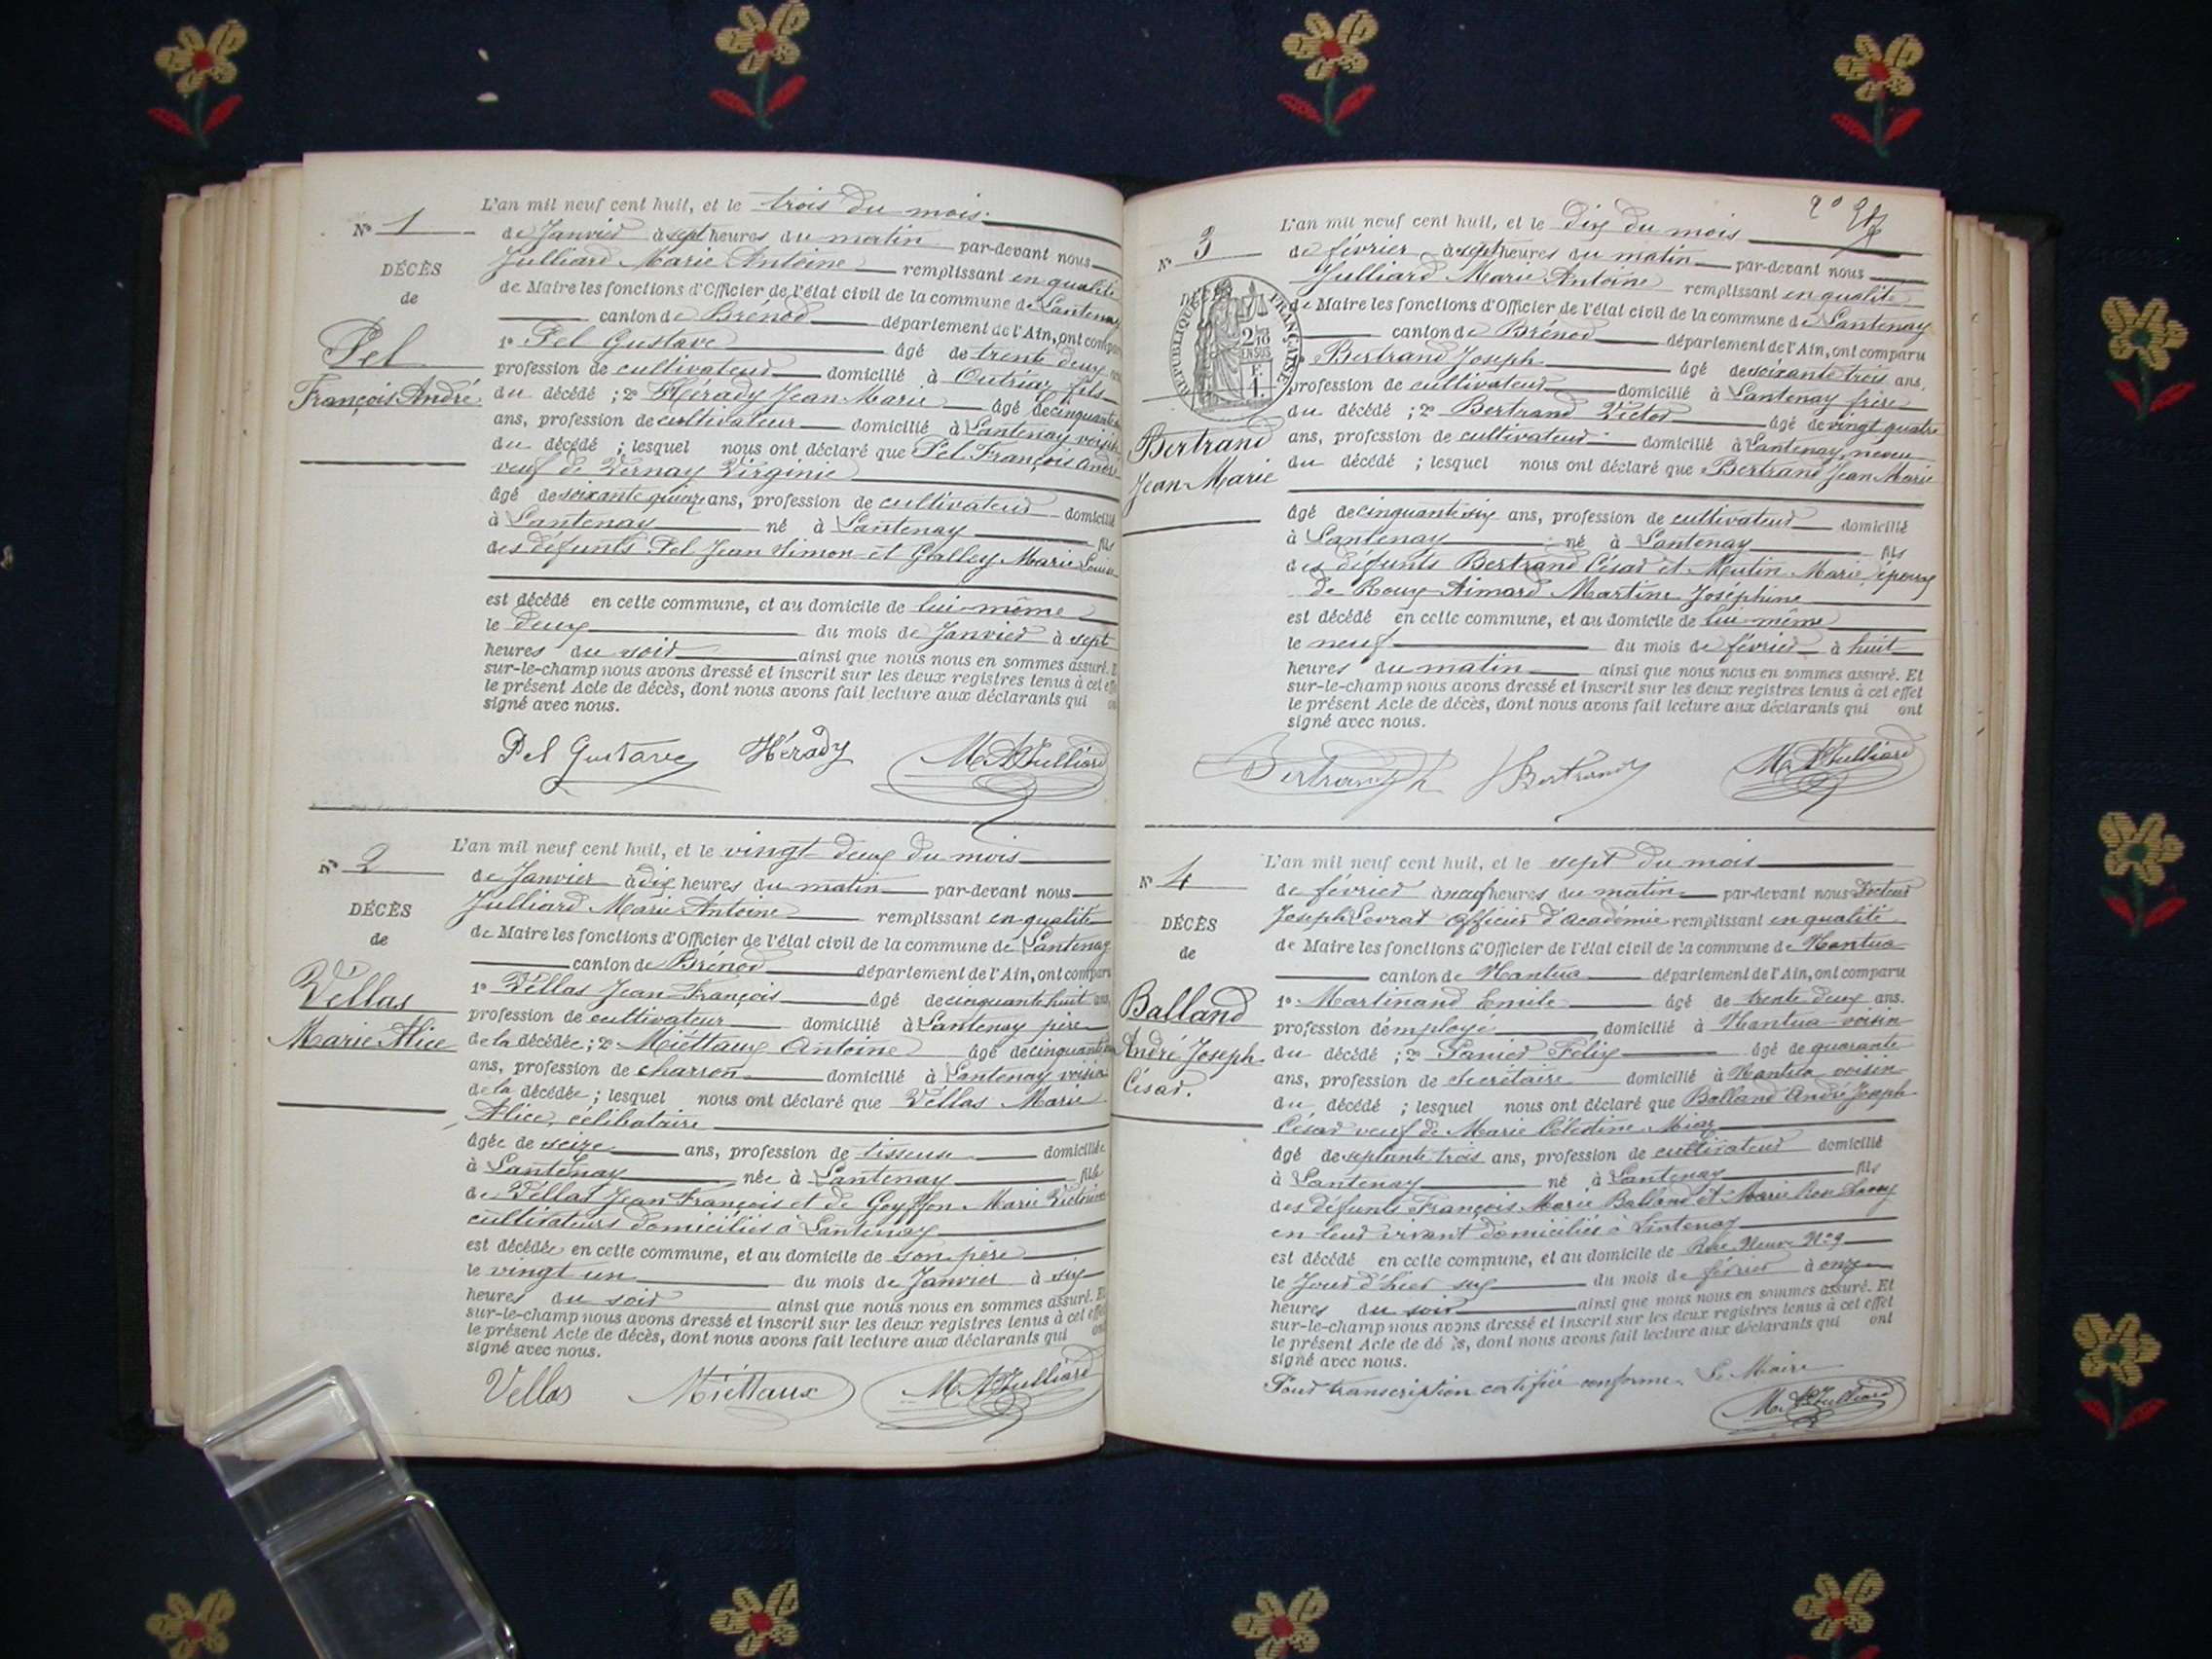 L'an mil neuf cent huit, et le trois du mois
N° 1
de Janvier à sept heures du matin par-devant nous
Julliard Marie Antoine remplissant en qualité
DÉCÈS
de Maire les fonctions d'Officier de l'état civil de la commune de Lantenay
de
canton de Brénod département de l'Ain, ont comparu
1° Pel Gustave âgé de trente deux ans
Pel
profession de cultivateur domicilié à Outriaz fils
François André
du décédé ; 2° Hérady Jean-Marie âgé de cinquante
ans, profession de cultivateur domicilié à Lantenay voisin
du décédé ; lesquel nous ont déclaré que Pel François André
veuf de Vernay Virginie
âgé de soixante quinze ans, profession de cultivateur domicilié
à Lantenay né à Lantenay fils
des défunts Pel Jean Simon et Galley Marie Louise
est décédé en cette commune, et au domicile de lui-même
le deux du mois de Janvier à sept
heures du soir ainsi que nous nous en sommes assuré. Et
sur-le-champ nous avons dressé et inscrit sur les deux registres tenus à cet effet
le présent Acte de décès, dont nous avons fait lecture aux déclarants qui ont
signé avec nous.
Pel Gustave Hérady M A Julliard
L'an mil neuf cent huit, et le vingt-deux du mois
N° 2
de Janvier à dix heures du matin par-devant nous
Julliard Marie Antoine remplissant en qualité
DÉCÈS
de Maire les fonctions d'Officier de l'état civil de la commune de Lantenay
de
canton de Brénod département de l'Ain, ont comparu
1° Vellas Jean-François âgé de cinquante huit ans,
Vellas
profession de cultivateur domicilié à Lantenay père
Marie Alice
de la décédée ; 2° Miéttaux Antoine âgé de cinquante
ans, profession de charron domicilié à Lantenay voisin
de la décédée ; lesquel nous ont déclaré que Vellas Marie
Alice, célibataire
âgée de seize ans, profession de tisseuse domiciliée
à Lantenay née à Lantenay fille
de Vellas Jean François et de Goyffon Marie Victorine
cultivateurs domiciliés à Lantenay
est décédée en cette commune, et au domicile de son père
le vingt un du mois de Janvier à six
heures du soir ainsi que nous nous en sommes assuré. Et
sur-le-champ nous avons dressé et inscrit sur les deux registres tenus à cet effet
le présent Acte de décès, dont nous avons fait lecture aux déclarants qui ont
signé avec nous.
Vellas Miéttaux M A Julliard
2°
L'an mil neuf cent huit, et le dix du mois
N° 3
de février à sept heures du matin par-devant nous
Julliard Marie Antoine remplissant en qualité
de Maire les fonctions d'Officier de l'état civil de la commune de Lantenay
RÉPUBLIQUE FRANÇAISE
2/10
EN SUS
F.
1.
canton de Brénod département de l'Ain, ont comparu
Bertrand Joseph âgé de soixante trois ans.
profession de cultivateur domicilié à Lantenay frère
du décédé ; 2° Bertrand Victor âgé de vingt quatre
Bertrand
ans, profession de cultivateur domicilié à Lantenay, neveu
Jean-Marie
du décédé ; lesquel nous ont déclaré que Bertrand Jean Marie
âgé de cinquante six ans, profession de cultivateur domicilié
à Lantenay né à Lantenay fils
des défunts Bertrand César et Mutin Marie, époux
de Roux Aimard Martine Joséphine
est décédé en cette commune, et au domicile de lui-même
le neuf du mois de février à huit
heures du matin ainsi que nous nous en sommes assuré. Et
sur-le-champ nous avons dressé et inscrit sur les deux registres tenus à cet effet
le présent Acte de décès, dont nous avons fait lecture aux déclarants qui ont
signé avec nous.
Bertrand Bertrand M A Julliard
L'an mil neuf cent huit, et le sept du mois
N° 4
de février à neuf heures du matin par-devant nous Docteur
Joseph Levrat Officier d'Académie remplissant en qualité
DÉCÈS
de Maire les fonctions d'Officier de l'état civil de la commune de Nantua
de
canton de Nantua département de l'Ain, ont comparu
1° Martinand Emile âgé de trente deux ans.
Balland
profession d'employé domicilié à Nantua voisin
André Joseph
du décédé ; 2° Panier Félix âgé de quarante
César.
ans, profession de secrétaire domicilié à Nantua voisin
du décédé ; lesquel nous ont déclaré que Balland André Joseph
César veuf de Marie Célestine
âgé de septante trois ans, profession de cultivateur domicilié
à Lantenay né à Lantenay fils
des défunts François Marie Balland et Marie
en leur vivant domiciliés à Lantenay
est décédé en cette commune, et au domicile de Rue Neuve N° 9
le Jour d'hier six du mois de février à onze
heures du soir ainsi que nous nous en sommes assuré. Et
sur-le-champ nous avons dressé et inscrit sur les deux registres tenus à cet effet
le présent Acte de décès, dont nous avons fait lecture aux déclarants qui ont
signé avec nous.
Pour transcription certifiée conforme. Le Maire
M. A Julliard